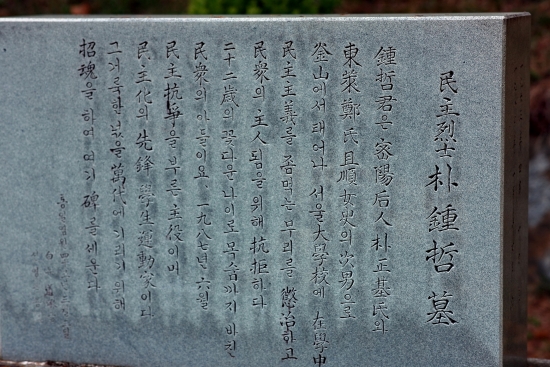 民主烈士 朴鍾哲 墓
鍾哲君은 密陽后人 朴正基氏와
東萊鄭氏且順女史의 次男으로
釜山에서 태어나 서울大學校에 在學中
民主主義를 좀먹는 무리를 懲治하고
民衆의 主人됨을 위해 抗拒하다
二十二歲의 꽃다운 나이로 목숨까지 바친
民衆의 아들이요, 一九八七년 六월
民主抗爭을 부른 主役이며
民主化의 先鋒 學生運動家이다
그 거룩한 넋을 萬代에 기리기 위해
招魂을 하여 여기 碑를 세운다